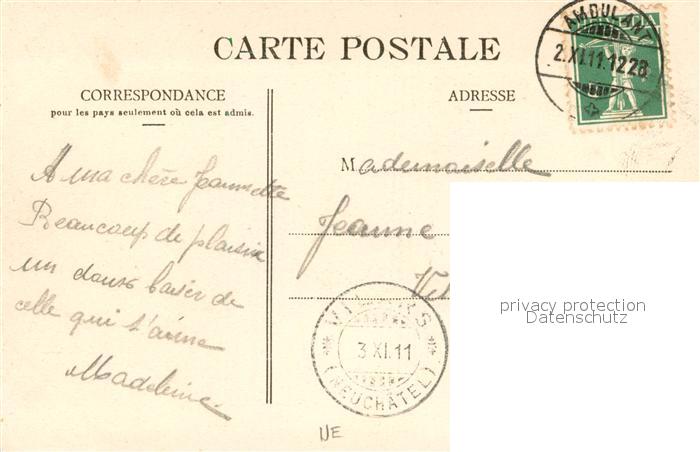 CARTE POSTALE
AMBULANT
2.XI.11.12
CORRESPONDANCE
pour les pays seulement où cela est admis.
ADRESSE
Mademoiselle
Jeanne
A ma chère Jeannette
Beaucoup de plaisir
un doux baiser de
celle qui t'aime
Madeleine
3 XI.11
(NEUCHÂTEL)
NE
privacy protection
Datenschutz